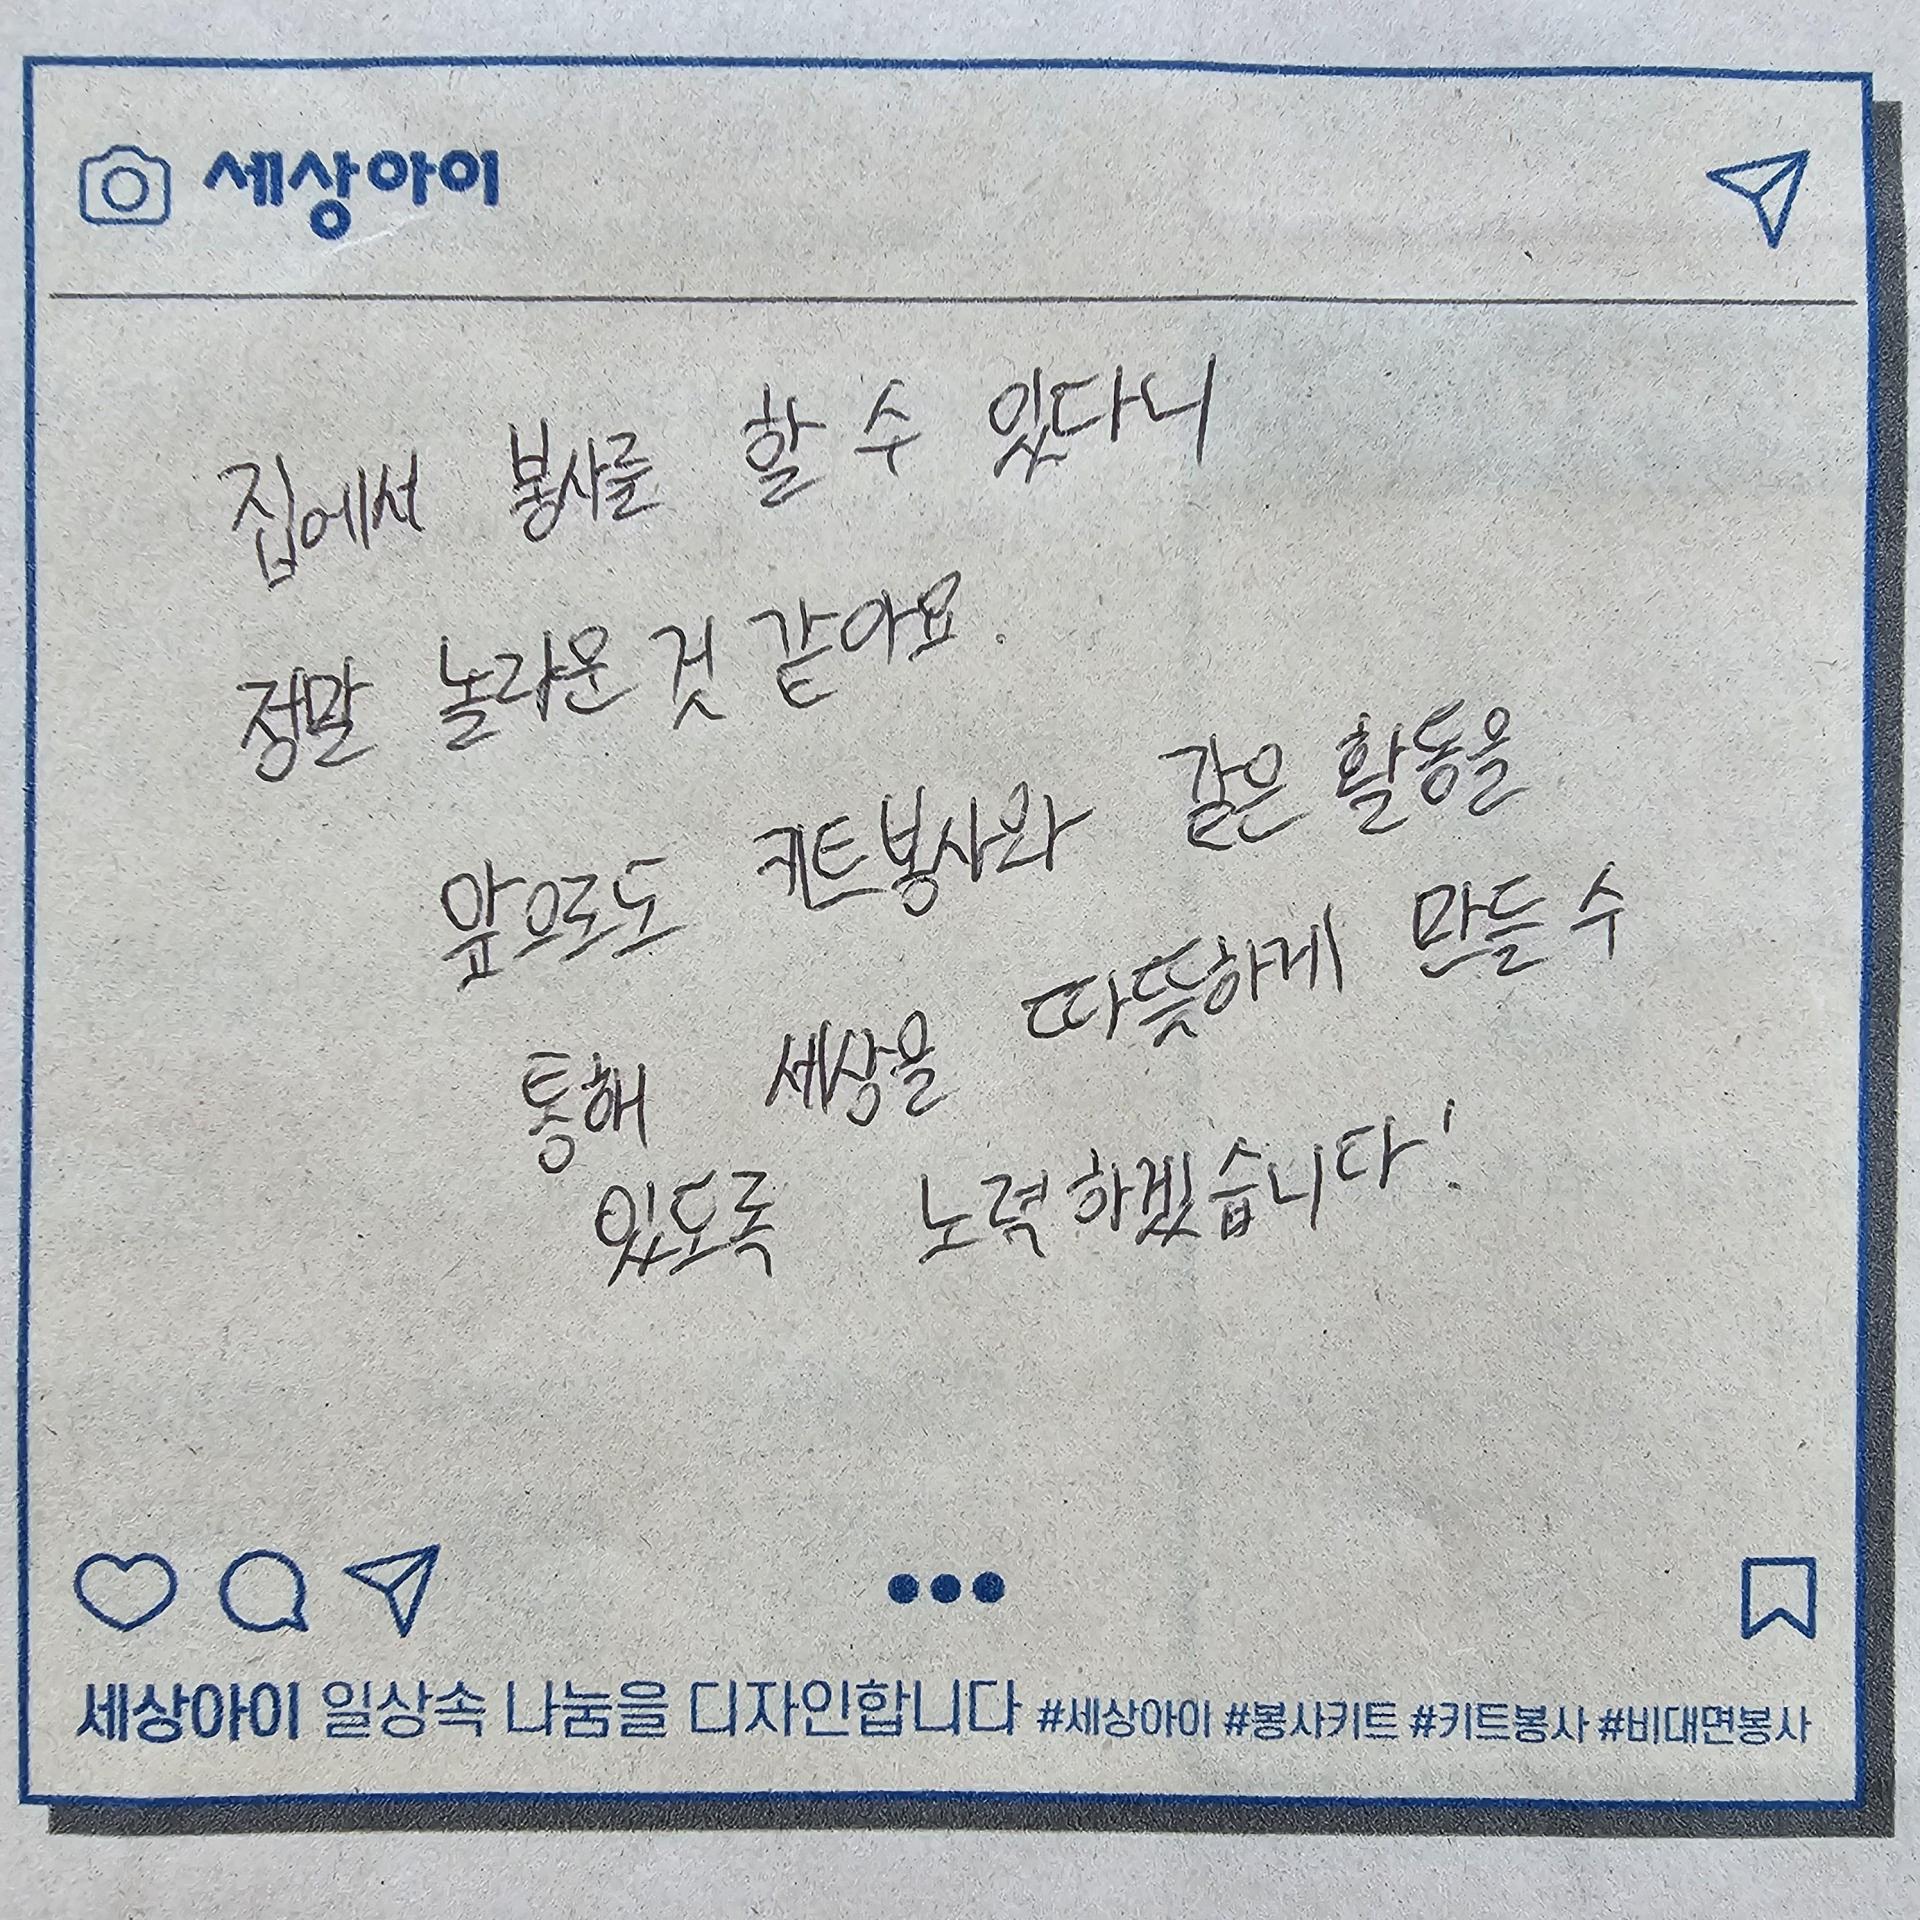 세상아이
집에서 봉사를 할 수 있다니
정말 놀라운 것 같아요.
앞으로도 키트봉사와 같은 활동을
통해 세상을 따뜻하게 만들 수
있도록 노력하겠습니다!
세상아이 일상속 나눔을 디자인합니다 #세상아이 #봉사키트 #키트봉사 #비대면봉사